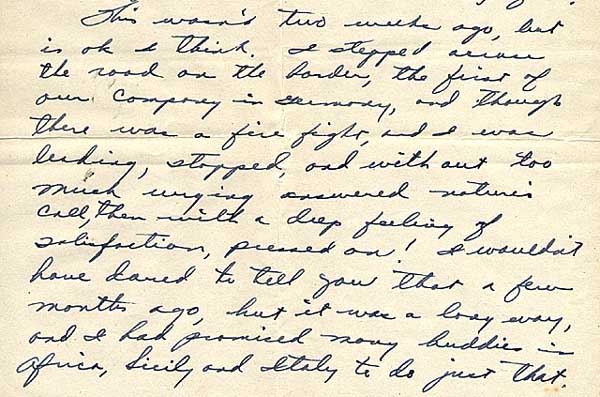 This wasn't two weeks ago, but
is ok I think. I stepped across
the road on the border, the first of
our company in Germany, and though
there was a fire fight, and I was
leading, stopped, and without too
much urging answered nature's
call, then with a deep feeling of
satisfaction, pressed on! I wouldn't
have dared to tell you that a few
months ago, but it was a long way,
and I had promised many buddies in
Africa, Sicily and Italy to do just that.